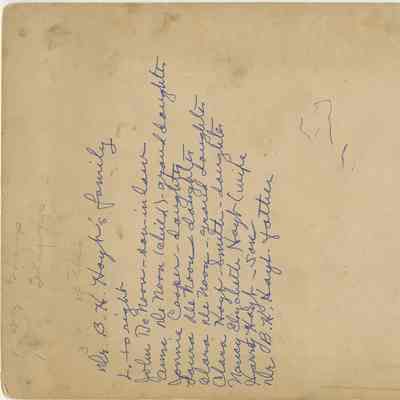 Dr. B. H. Hoyt's family
L. to right
John De Noon - son-in-law
Anne De Noon (child) - grand daughter
Jennie Cooper - daughter
Laura De Noon - daughter
Clara De Noon - grand daughter
Clara Hoyt Smith - daughter
Nancy Elizabeth Hoyt (wife
Harry Hoyt - Son
Dr. B. H. Hoyt - father